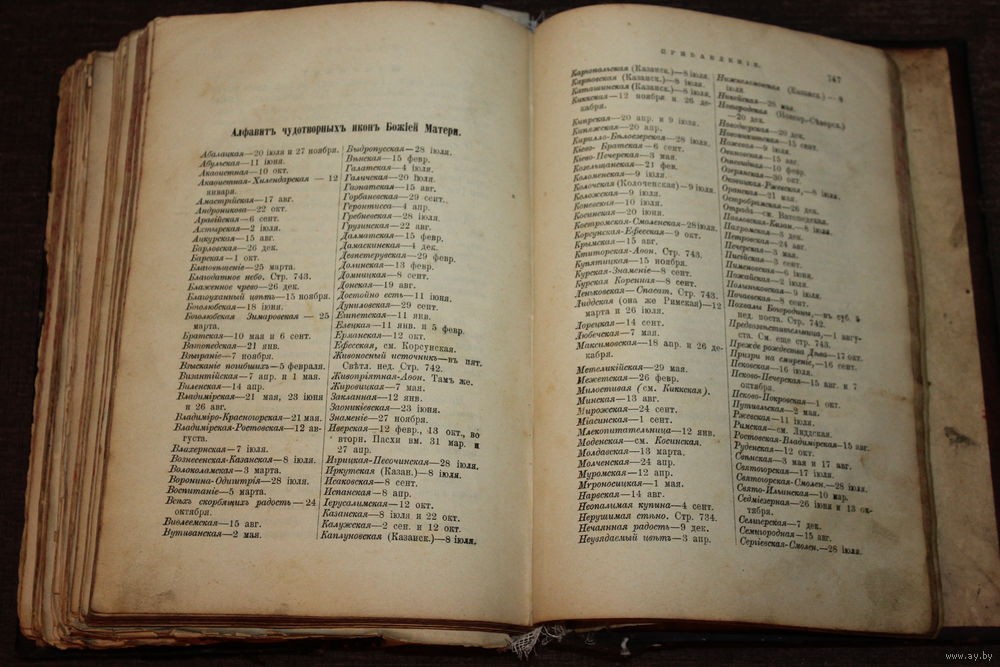 Алфавитъ чудотворныхъ иконъ Божіей Матери.
Абалацкая—20 іюля и 27 ноября.
Абульская—11 іюня.
Акаѳистная—10 окт.
Акаѳистная-Хилендарская — 12
января.
Амастрійская—17 авг.
Андроникова—22 окт.
Аравійская—6 сент.
Ахтырская—2 іюля.
Ацкурская—15 авг.
Барловская—26 дек.
Барская—1 окт.
Благовѣщеніе—25 марта.
Благодатное небо. Стр. 743.
Блаженное чрево—26 дек.
Благоуханный цвѣтъ—15 ноября.
Боголюбская—18 іюня.
Боголюбская Зимаровская — 25
марта.
Братская—10 мая и 6 сент.
Ватопедская—21 янв.
Взыграніе—7 ноября.
Взысканіе погибшихъ—5 февраля.
Византійская—7 апр. и 1 мая.
Виленская—14 апр.
Владимірская—21 мая, 23 іюня
и 26 авг.
Владиміро-Красногорская—21 мая.
Владимірская-Ростовская—12 ав-
густа.
Влахернская—7 іюля.
Вознесенская-Казанская—8 іюля.
Волоколамская—3 марта.
Воронина-Одигитрія—28 іюля.
Воспитаніе—5 марта.
Всѣхъ скорбящихъ радость—24
октября.
Виѳлеемская—15 авг.
Вутиванская—2 мая.
Выдропусская—28 іюля.
Вѣнская—15 февр.
Галатская—4 іюля.
Галичская—20 іюля.
Гаэнатская—15 авг.
Горбаневская—29 сент.
Геронтисса—4 апр.
Гребневская—28 іюля.
Грузинская—22 авг.
Далматская—15 февр.
Дамаскинская—4 дек.
Девпетерувская—29 февр.
Долинская—13 февр.
Домницкая—8 сент.
Донская—19 авг.
Достойно есть—11 іюня.
Дуниловская—29 сент.
Египетская—11 янв.
Елецкая—11 янв. и 5 февр.
Ерманская—12 окт.
Ефесская, см. Корсунская.
Живоносный источникъ—въ пят.
Свѣтл. нед. Стр. 742.
Живопріятная-Аѳон. Тамъ же.
Жировицкая—7 мая.
Закланная—12 янв.
Заоникіевская—23 іюня.
Знаменіе—27 ноября.
Иверская—12 февр., 13 окт., во
вторн. Пасхи вм. 31 мар. и
27 апр.
Изрицкая-Песочинская—28 іюля.
Иркутская (Казан.)—8 іюля.
Исаковская—8 сент.
Испанская—8 апр.
Іерусалимская—12 окт.
Казанская—8 іюля и 22 окт.
Калужская—2 сен. и 12 окт.
Каплуновская (Казанск.)—8 іюля.
ПРИБАВЛЕНІЯ.
747
Каргопальская (Казанск.)—8 іюля.
Карповская (Казанск.)—8 іюля.
Каташинская (Казанск.)—8 іюля.
Киккская—12 ноября и 26 де-
кабря.
Кипрская—20 апр. и 9 іюля.
Кипяжская—20 апр.
Кирилло-Бѣлоезерская—28 іюля.
Кіево- Братская—6 сент.
Кіево-Печерская—3 мая.
Козельщанская—21 фев.
Коломенская—9 іюля.
Колочская (Колоченская)—9 іюля.
Коложская—9 іюля.
Коневская—10 іюля.
Косинская—20 іюня.
Костромская-Смоленская—28іюля.
Корсунская-Ефесская—9 окт.
Крымская—15 авг.
Ктиторская-Аѳон. Стр. 743.
Купятицкая—15 ноября.
Курская-Знаменіе—8 сент.
Курская Коренная—8 сент.
Леньковская—Спасит. Стр. 743.
Лиддская (она же Римская)—12
марта и 26 іюля.
Лорецкая—14 сент.
Любечская—7 мая.
Максимовская—18 апр. и 26 де-
кабря.
Метеликійская—29 мая.
Межетская—26 февр.
Милостивая (см. Киккская).
Минская—13 авг.
Мирожская—24 сент.
Міасинская—1 сент.
Млекопитательница—12 янв.
Моденская—см. Косинская.
Молдавская—13 марта.
Молченская—24 апр.
Муромская—12 апр.
Мѵроносицкая—1 мая.
Нарвская—14 авг.
Неопалимая купина—4 сент.
Нерушимая стѣна. Стр. 734.
Нечаянная радость—9 дек.
Неувядаемый цвѣтъ—3 апр.
Нижнеломовская (Казанск.) — 8
іюля.
Никейская—28 мая.
Новгородская (Новгор.-Сѣверск.)
—20 дек.
Новодворская—20 дек.
Новоникитская—15 сент.
Ножевая—9 іюля.
Овиновская—15 авг.
Огневидная—10 февр.
Озерянская—30 окт.
Оковецкая-Ржевская,—8 іюля.
Оранская—21 мая.
Остробрамская—26 дек.
Отрада—см. Ватопедская.
Павловская-Казан.—8 іюля.
Пахромская—3 дек.
Петровская—24 авг.
Печерская—3 мая.
Писійская—3 сент.
Пименовская—6 іюня.
Пожайская—2 іюля.
Полиньковская—9 іюля.
Почаевская—8 сент.
Похвалы Богородицы,—въ суб. 5
нед. поста. Стр. 742.
Предвозвѣстительница,—1 авгу-
ста. См. еще стр. 743.
Прежде рождества Дѣва—17 окт.
Призри на смиреніе,—16 сент.
Псковская—16 іюля.
Псково-Печерская—15 авг. и 7
октября.
Псково-Покровская—1 окт.
Путивльская—2 мая.
Ржевская—11 іюля.
Римская—см. Лиддская.
Ростовская-Владимірская—15 авг.
Руденская—12 окт.
Свѣнская—3 мая и 17 авг.
Святогорская—17 іюля.
Святогорская-Смолен.—28 іюля.
Свято-Ильинская—10 мар.
Седміезерная—26 іюня и 13 ок-
тября.
Селигерская—7 дек.
Семигородная—15 авг.
Сергіевская-Смолен.—28 іюля.
www.ay.by